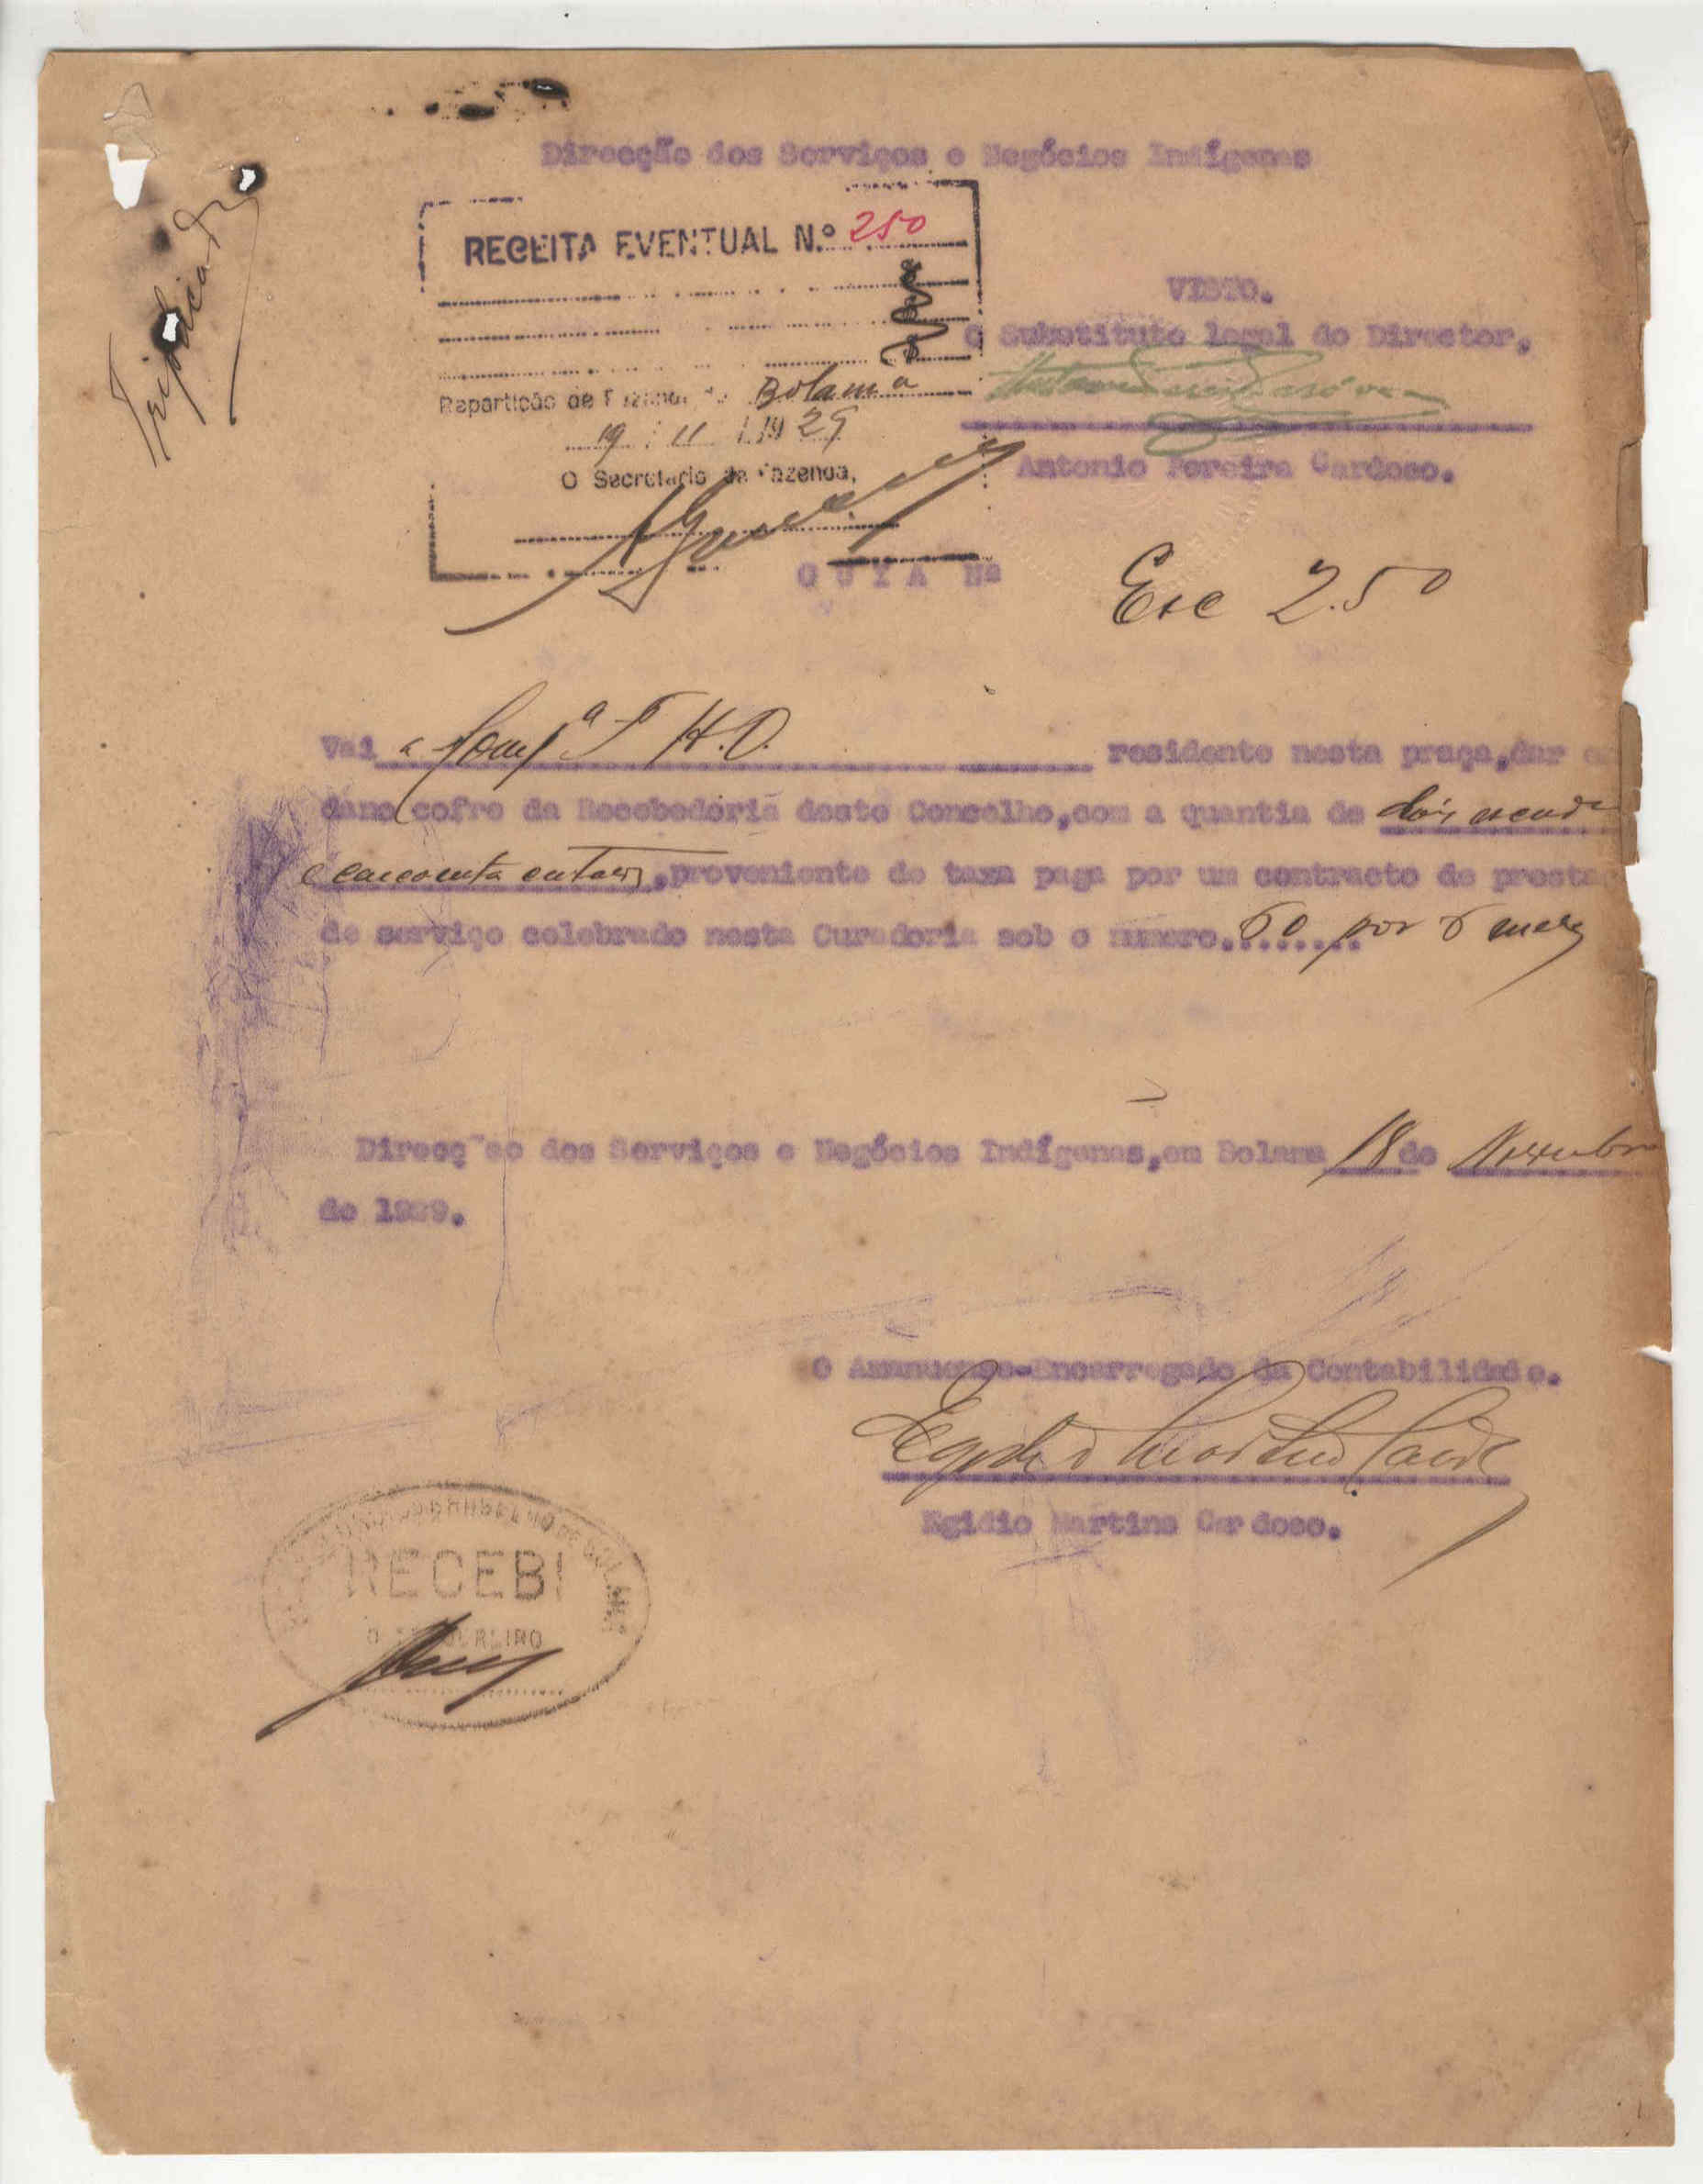 Direcção dos Serviços e Negócios Indígenas
RECEITA EVENTUAL N.º 250
VISTO.
O Substituto legal do Director.
Repartição de Fazenda de Bolama
19 / 11 / 1929
O Secretario de Fazenda,
Antonio Pereira Cardoso.
GUIA Nº
Esc 2.50
Vai a Compª H.D. residente nesta praça,dar e
dano cofre da Recebedoria deste Concelho,com a quantia de dois escudo
e cincoenta centavos,proveniente de taxa paga por um contracto de presta
de serviço celebrado nesta Curadoria sob o numero........60 por 6 meses
Direcç~ao dos Serviços e Negócios Indígenas,em Bolama 18 de Novembro
de 1929.
O Amanuense-Encarregado da Contabilidade.
Egidio Martins Cardoso
Egidio Martins Cardoso.
BOLAMA
RECEBI
O TESOUREIRO